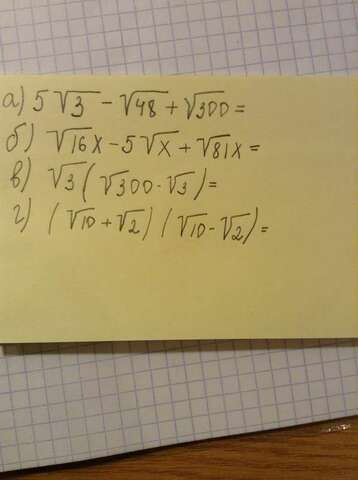 а) 5√3 - √48 + √300 =
б) √16x - 5√x + √81x =
в) √3 (√300 - √3) =
г) (√10 + √2) (√10 - √2) =